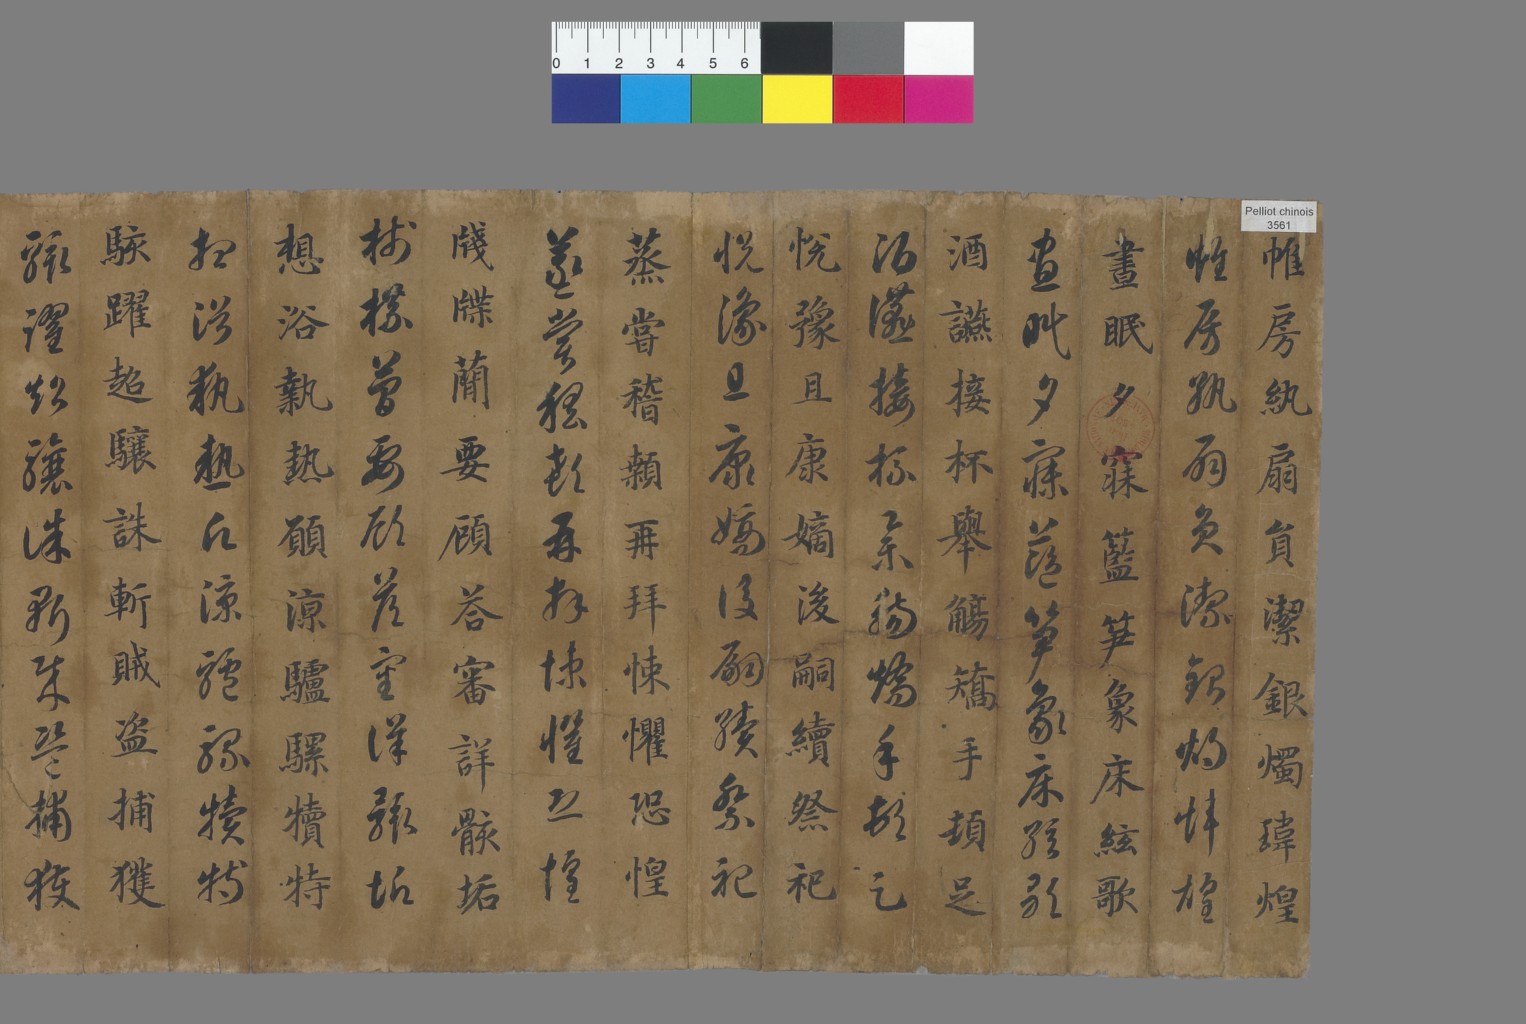 0 1 2 3 4 5 6
Pelliot chinois
3561
帷房紈扇員潔銀燭瑋煌
帷房紈扇員潔銀燭煒煌
晝眠夕寐籃笋象床絃歌
晝眠夕寐藍笋象床絃歌
酒讌接杯舉觴矯手頓足
酒讌接杯舉觴矯手頓足
悅豫且康嫡後嗣續祭祀
悅豫且康嫡後嗣續祭祀
蒸嘗稽顙再拜悚懼恐惶
蒸嘗稽顙再拜悚懼恐惶
牋牒蕳要顧荅審詳骸垢
牋牒蕳要顧荅審詳骸垢
想浴執熱願涼驢騾犢特
想浴執熱願涼驢騾犢特
駭躍超驤誅斬賊盜捕獲
駭躍超驤誅斬賊盜捕獲